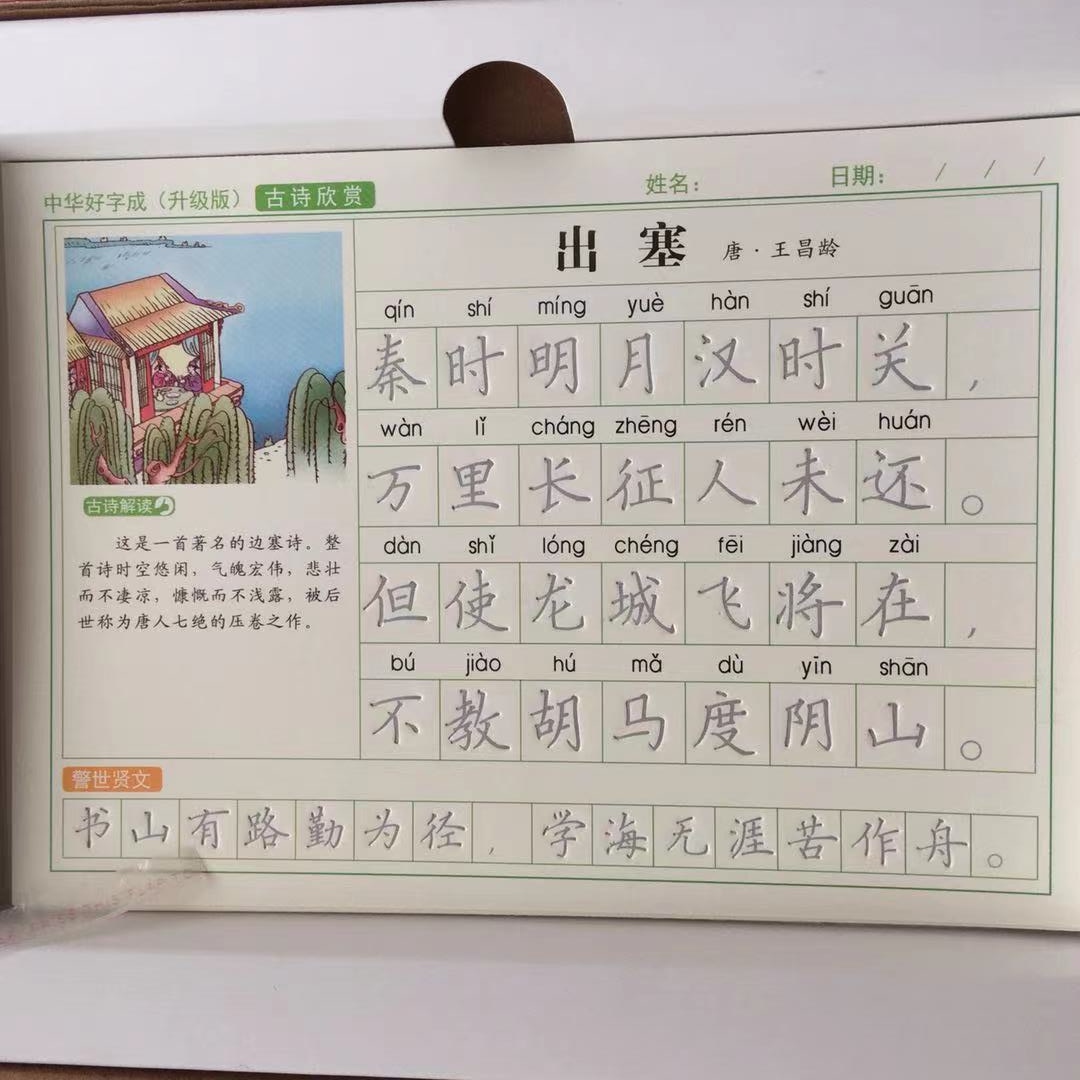 中华好字成（升级版） 古诗欣赏 姓名： 日期： / / /
出塞 唐·王昌龄
qín shí míng yuè hàn shí guān
秦时明月汉时关，
wàn lǐ cháng zhēng rén wèi huán
万里长征人未还。
dàn shǐ lóng chéng fēi jiàng zài
但使龙城飞将在，
bú jiào hú mǎ dù yīn shān
不教胡马度阴山。
古诗解读
这是一首著名的边塞诗。整
首诗时空悠闲，气魄宏伟，悲壮
而不凄凉，慷慨而不浅露，被后
世称为唐人七绝的压卷之作。
警世贤文
书山有路勤为径，学海无涯苦作舟。